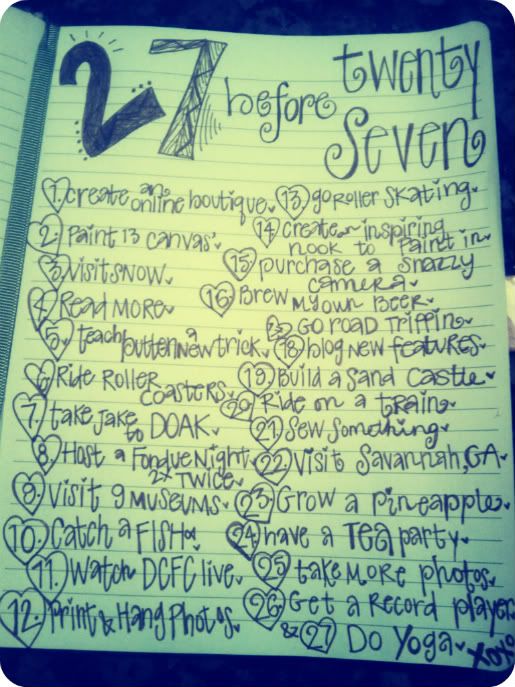 27 before twenty
seven
1. create an online boutique
2. Paint 13 canvas'
3. visit snow
4. Read more
5. teach button a new trick
6. Ride Roller
coasters
7. take jake
to DOAK
8. Host a Fondue Night
2x twice
9. visit 9 museums
10. Catch a FISH
11. Watch DCFC live
12. print & Hang Photos
13. go Roller skating
14. create an inspiring
nook to paint in
15. purchase a snazzy
camera
16. Brew my own Beer
GO ROAD Trippin
18. blog new features
19. Build a Sand Castle
20. Ride on a train
21. Sew Something
22. Visit Savannah, GA
23. Grow a pineapple
24. have a TEA party
25. take more photos
26. Get a Record player
& 27. Do Yoga
xoxo